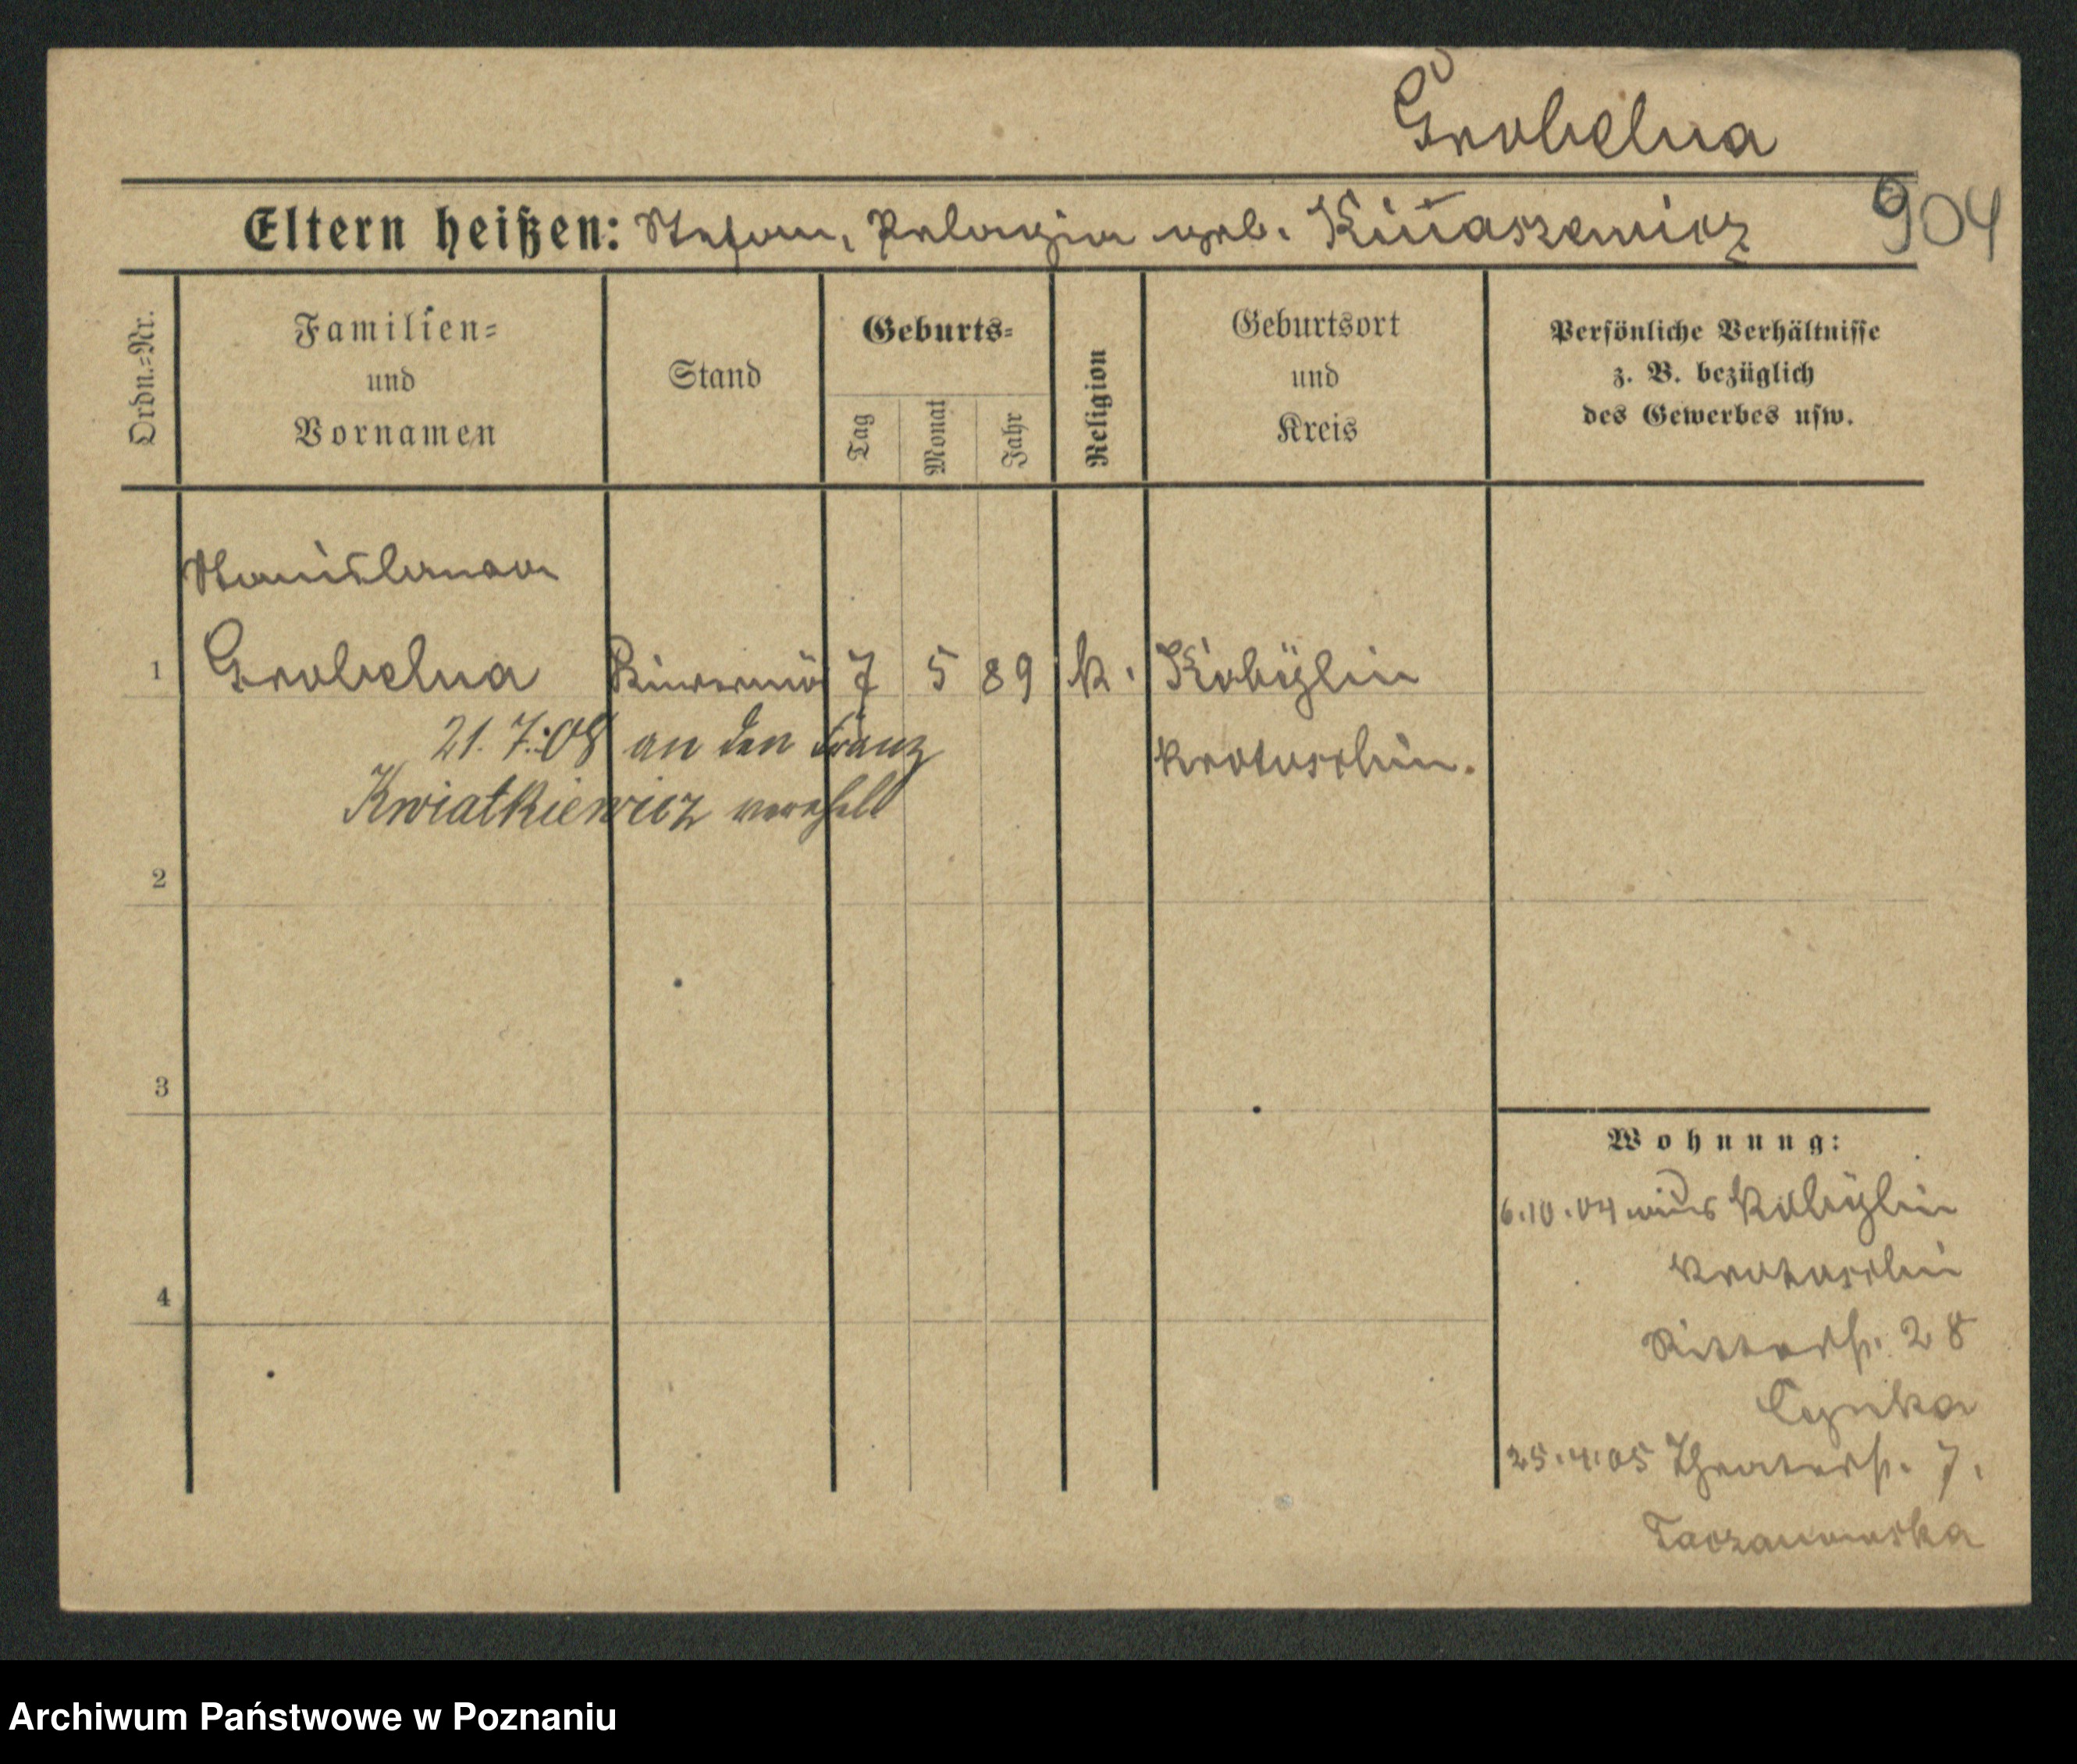 Grobelna
904
Eltern heißen: Stefan, Pelagia geb.
Ordn.-Nr.
Familien-
und
Vornamen
Stand
Geburts-
Tag
Monat
Jahr
Religion
Geburtsort
und
Kreis
Persönliche Verhältnisse
z. B. bezüglich
des Gewerbes usw.
Stanislawa
1 Grobelna 7 5 89 k. Kobylin
Krotoschin.
21.7.08 an den Franz
Kwiatkiewicz verehel
2
3
4
Wohnung:
6.10.04 aus Kobylin
Krotoschin
Ritterstr. 28
25.4.05 Theaterstr. 7.
Taczanowska
Archiwum Państwowe w Poznaniu